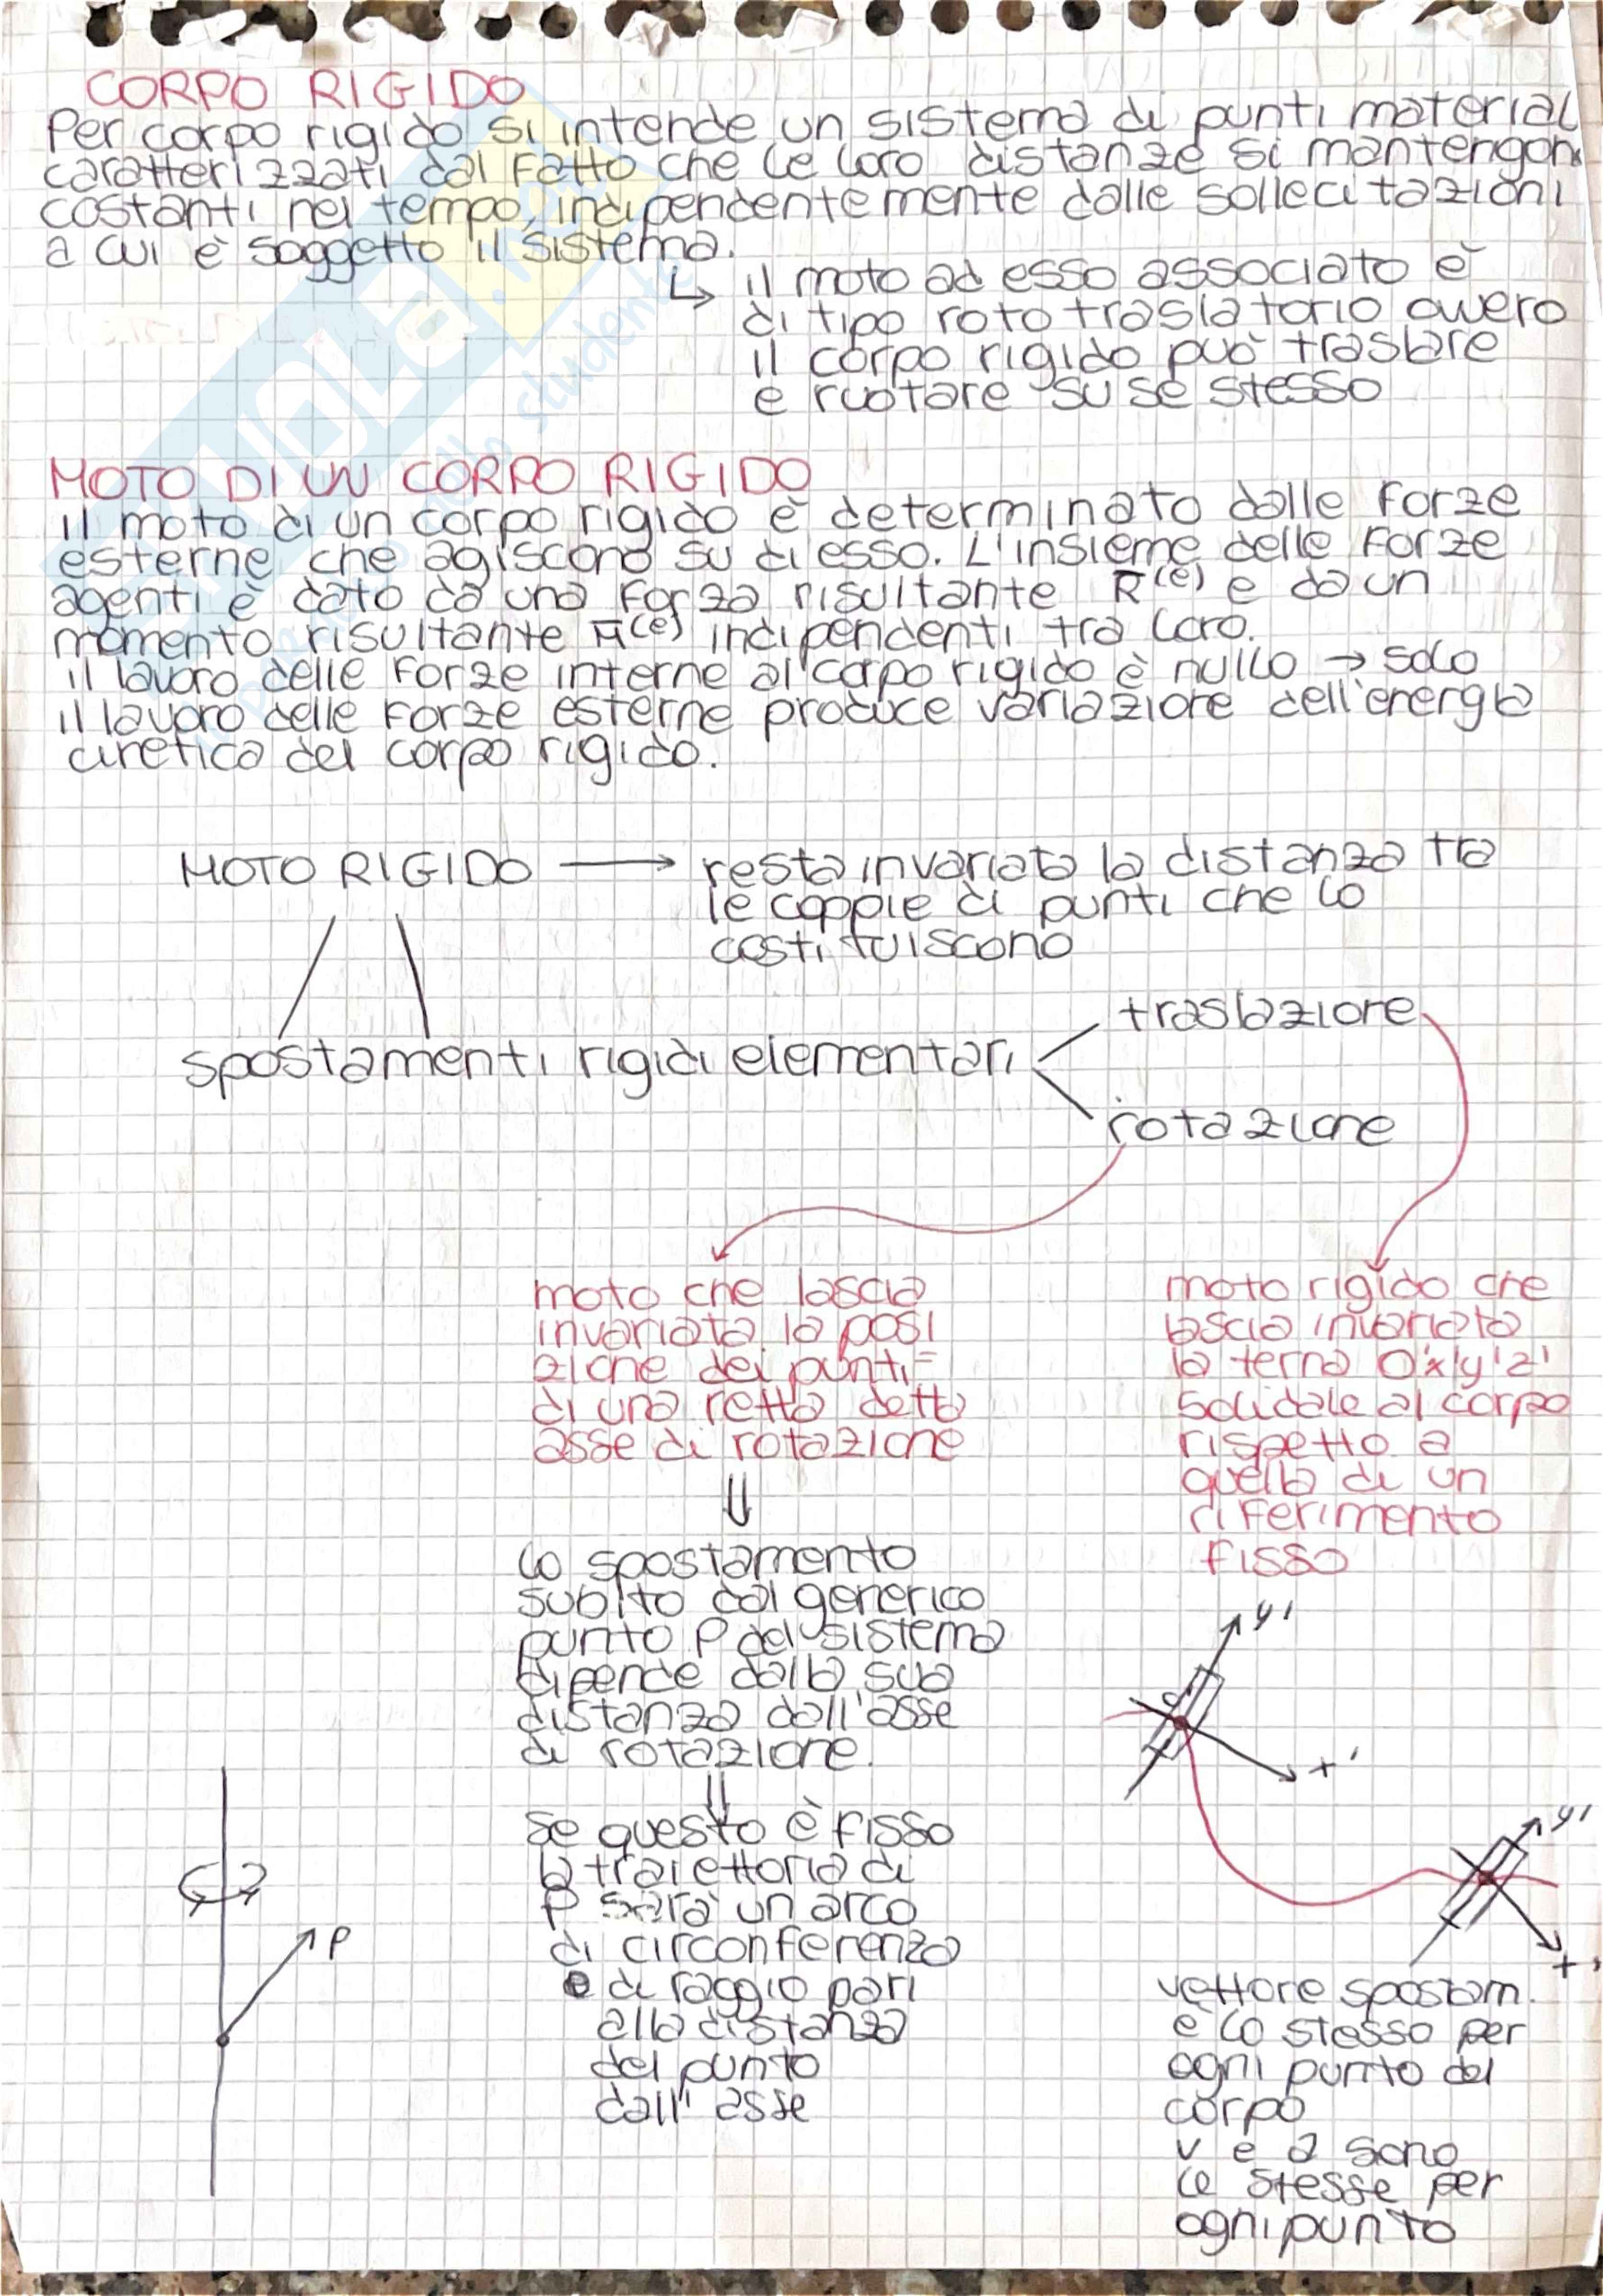 CORPO RIGIDO
Per corpo rigido si intende un sistema di punti material
caratterizzati dal fatto che le loro distanze si mantengon
costanti nel tempo, indipendentemente dalle sollecitazioni
a cui è soggetto il sistema.
↳ il moto ad esso associato è
di tipo roto traslatorio ovvero
il corpo rigido può traslare
e ruotare su se stesso
MOTO DI UN CORPO RIGIDO
il moto di un corpo rigido è determinato dalle forze
esterne che agiscono su di esso. L'insieme delle forze
agenti è dato da una forza risultante R̄⁽ᵉ⁾ e da un
momento risultante M̄⁽ᵉ⁾ indipendenti tra loro.
il lavoro delle forze interne al corpo rigido è nullo → solo
il lavoro delle forze esterne produce variazione dell'energia
cinetica del corpo rigido.
MOTO RIGIDO → resta invariata la distanza tra
le coppie di punti che lo
costituiscono
spostamenti rigidi elementari
traslazione
rotazione
moto che lascia
invariata la posi
zione dei punti
di una retta detta
asse di rotazione
⇓
lo spostamento
subito dal generico
punto P del sistema
dipende dalla sua
distanza dall'asse
di rotazione.
⇓
se questo è fisso
la traiettoria di
P sarà un arco
di circonferenza
e di raggio pari
alla distanza
del punto
dall'asse
P
moto rigido che
lascia invariata
la terna O'x'y'z'
solidale al corpo
rispetto a
quella di un
riferimento
fisso
y'
o'
x'
y'
x'
vettore spostam.
è lo stesso per
ogni punto del
corpo
v e a sono
le stesse per
ogni punto
SKUOLA.net
il paradiso dello studente